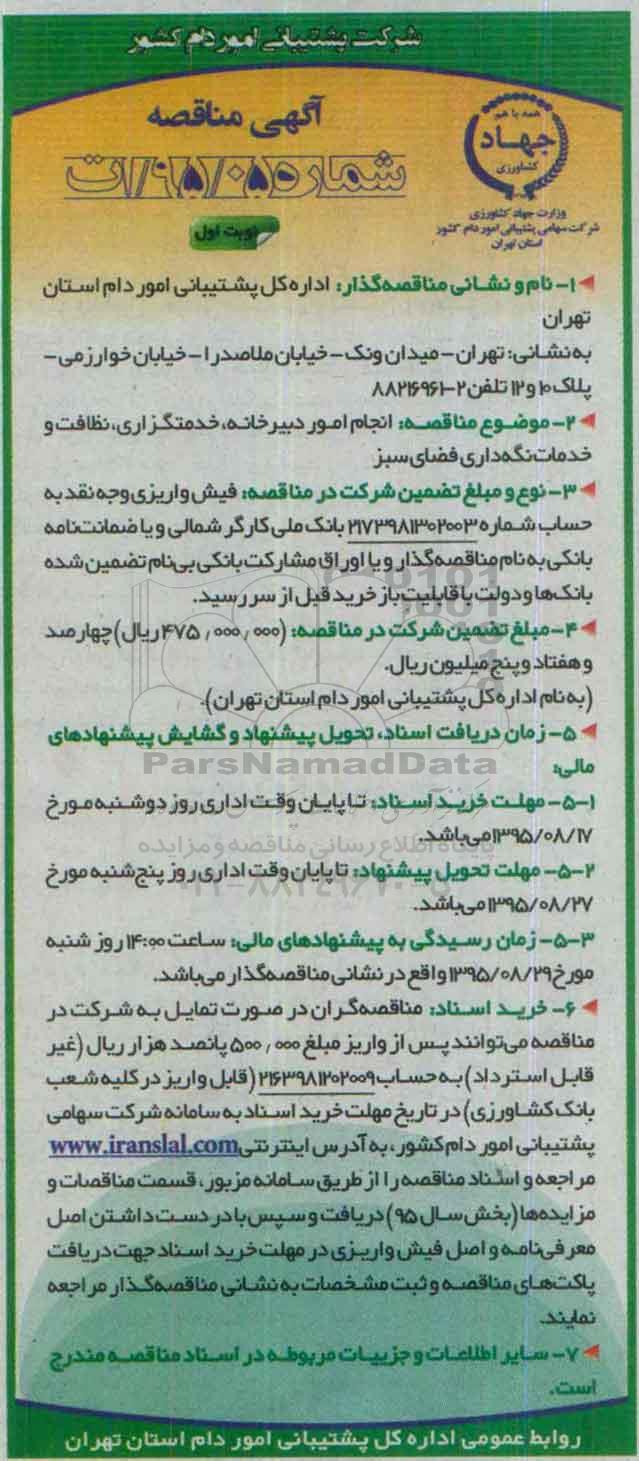 شرکت پشتیبانی امور دام کشور
همه با هم
جهاد
کشاورزی
وزارت جهاد کشاورزی
شرکت سهامی پشتیبانی امور دام کشور
استان تهران
آگهی مناقصه
نوبت اول
۱- نام و نشانی مناقصه‌گذار: اداره کل پشتیبانی امور دام استان
تهران
به نشانی: تهران - میدان ونک - خیابان ملاصدرا - خیابان خوارزمی -
پلاک ۱۰ و ۱۲ تلفن ۲-۸۸۲۱۶۹۶۱
۲- موضوع مناقصه: انجام امور دبیرخانه، خدمتگزاری، نظافت و
خدمات نگه‌داری فضای سبز
۳- نوع و مبلغ تضمین شرکت در مناقصه: فیش واریزی وجه نقد به
حساب شماره ۲۱۷۳۹۸۱۳۰۲۰۰۳ بانک ملی کارگر شمالی و یا ضمانت‌نامه
بانکی به نام مناقصه‌گذار و یا اوراق مشارکت بانکی بی‌نام تضمین شده
بانک‌ها و دولت با قابلیت باز خرید قبل از سررسید.
۴- مبلغ تضمین شرکت در مناقصه: (۴۷۵٫۰۰۰٫۰۰۰ ریال) چهارصد
و هفتاد و پنج میلیون ریال.
(به نام اداره کل پشتیبانی امور دام استان تهران).
۵- زمان دریافت اسناد، تحویل پیشنهاد و گشایش پیشنهادهای
مالی:
ParsNamadData
۵-۱- مهلت خرید اسناد: تا پایان وقت اداری روز دوشنبه مورخ
۱۳۹۵/۰۸/۱۷ می‌باشد.
پایگاه اطلاع رسانی مناقصه و مزایده
۵-۲- مهلت تحویل پیشنهاد: تا پایان وقت اداری روز پنج‌شنبه مورخ
۱۳۹۵/۰۸/۲۷ می‌باشد.
۵-۳- زمان رسیدگی به پیشنهادهای مالی: ساعت ۱۴:۰۰ روز شنبه
مورخ ۱۳۹۵/۰۸/۲۹ واقع در نشانی مناقصه‌گذار می‌باشد.
۶- خرید اسناد: مناقصه‌گران در صورت تمایل به شرکت در
مناقصه می‌توانند پس از واریز مبلغ ۵۰۰٫۰۰۰ پانصد هزار ریال (غیر
قابل استرداد) به حساب ۲۱۶۳۹۸۱۲۰۲۰۰۹ (قابل واریز در کلیه شعب
بانک کشاورزی) در تاریخ مهلت خرید اسناد به سامانه شرکت سهامی
پشتیبانی امور دام کشور، به آدرس اینترنتی www.iranslal.com
مراجعه و اسناد مناقصه را از طریق سامانه مزبور، قسمت مناقصات و
مزایده‌ها (بخش سال ۹۵) دریافت و سپس با در دست داشتن اصل
معرفی‌نامه و اصل فیش واریزی در مهلت خرید اسناد جهت دریافت
پاکت‌های مناقصه و ثبت مشخصات به نشانی مناقصه‌گذار مراجعه
نمایند.
۷- سایر اطلاعات و جزییات مربوطه در اسناد مناقصه مندرج
است.
روابط عمومی اداره کل پشتیبانی امور دام استان تهران